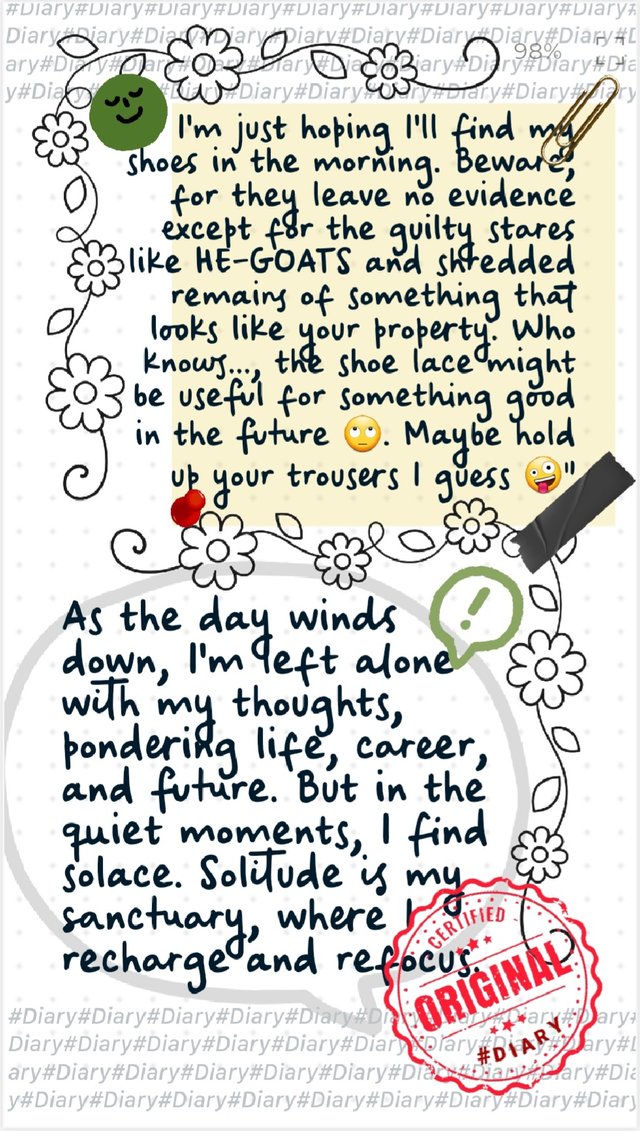 #Diary#Diary#Diary#Diary#Diary#Diary#Diary#Diary
Diary#Diary#Diary#Diary#Diary#Diary#Diary#Diary#
98%
ary#Diary#Diary#Diary#Diary#Diary#Diary#Diary#Dia
y#Diary#Diary#Diary#Diary#Diary#Diary#Diary#Diary
I'm just hoping I'll find my
shoes in the morning. Beware,
for they leave no evidence
except for the guilty stares
like HE-GOATS and shredded
remains of something that
looks like your property. Who
knows..., the shoe lace might
be useful for something good
in the future 🙄. Maybe hold
up your trousers I guess 🤪"
!
As the day winds
down, I'm left alone
with my thoughts,
pondering life, career,
and future. But in the
quiet moments, I find
solace. Solitude is my
sanctuary, where I
recharge and refocus.
CERTIFIED
ORIGINAL
#DIARY
#Diary#Diary#Diary#Diary#Diary#Diary#Diary#Diary
Diary#Diary#Diary#Diary#Diary#Diary#Diary#Diary#
ary#Diary#Diary#Diary#Diary#Diary#Diary#Diary#Dia
y#Diary#Diary#Diary#Diary#Diary#Diary#Diary#Diary